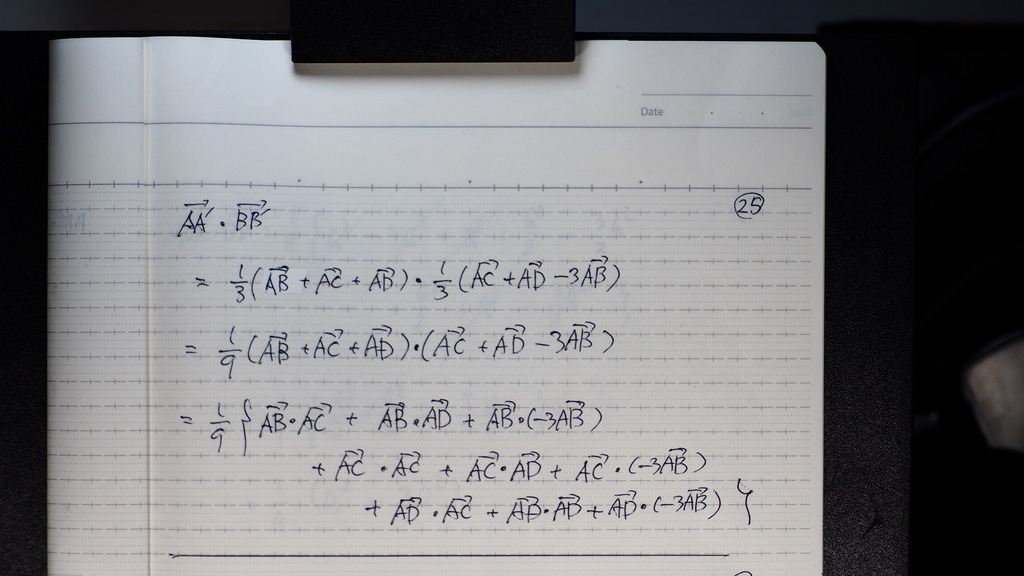 Date
㉕
AA'→ · BB'→
= 1/3 (AB→ + AC→ + AD→) · 1/3 (AC→ + AD→ - 3AB→)
= 1/9 (AB→ + AC→ + AD→) · (AC→ + AD→ - 3AB→)
= 1/9 { AB→ · AC→ + AB→ · AD→ + AB→ · (-3AB→)
+ AC→ · AC→ + AC→ · AD→ + AC→ · (-3AB→)
+ AD→ · AC→ + AD→ · AD→ + AD→ · (-3AB→) }